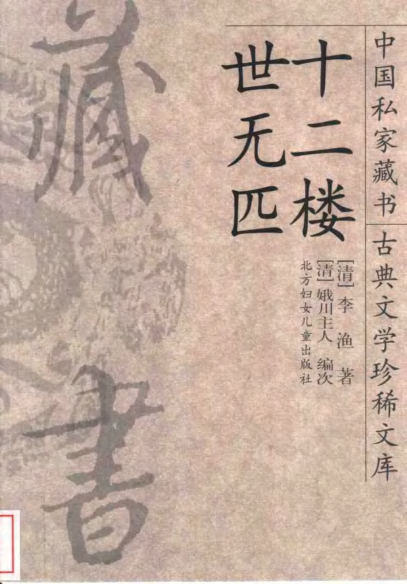 中国私家藏书 古典文学珍稀文库
十二楼
世无匹
[清]李渔 著
[清]娥川主人 编次
北方妇女儿童出版社
藏
書